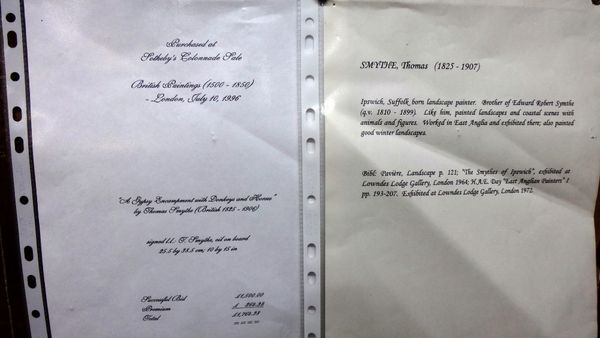 Purchased at
Sotheby's Colonnade Sale
British Paintings (1500 - 1850)
- London, July 10, 1996
"A Gypsy Encampment with Donkeys and Horses"
by Thomas Smythe (British 1825 - 1906)
signed LL. T. Smythe, oil on board
25.5 by 38.5 cm; 10 by 15 in
Successful Bid £1,500.00
Premium
Total
SMYTHE, Thomas (1825 - 1907)
Ipswich, Suffolk born landscape painter. Brother of Edward Robert Symthe
(q.v. 1810 - 1899). Like him, painted landscapes and coastal scenes with
animals and figures. Worked in East Anglia and exhibited there; also painted
good winter landscapes.
Bibl: Pavière, Landscape p. 121; "The Smythes of Ipswich", exhibited at
Lowndes Lodge Gallery, London 1964; H.A.E. Day "East Anglian Painters" I
pp. 193-207. Exhibited at Lowndes Lodge Gallery, London 1972.